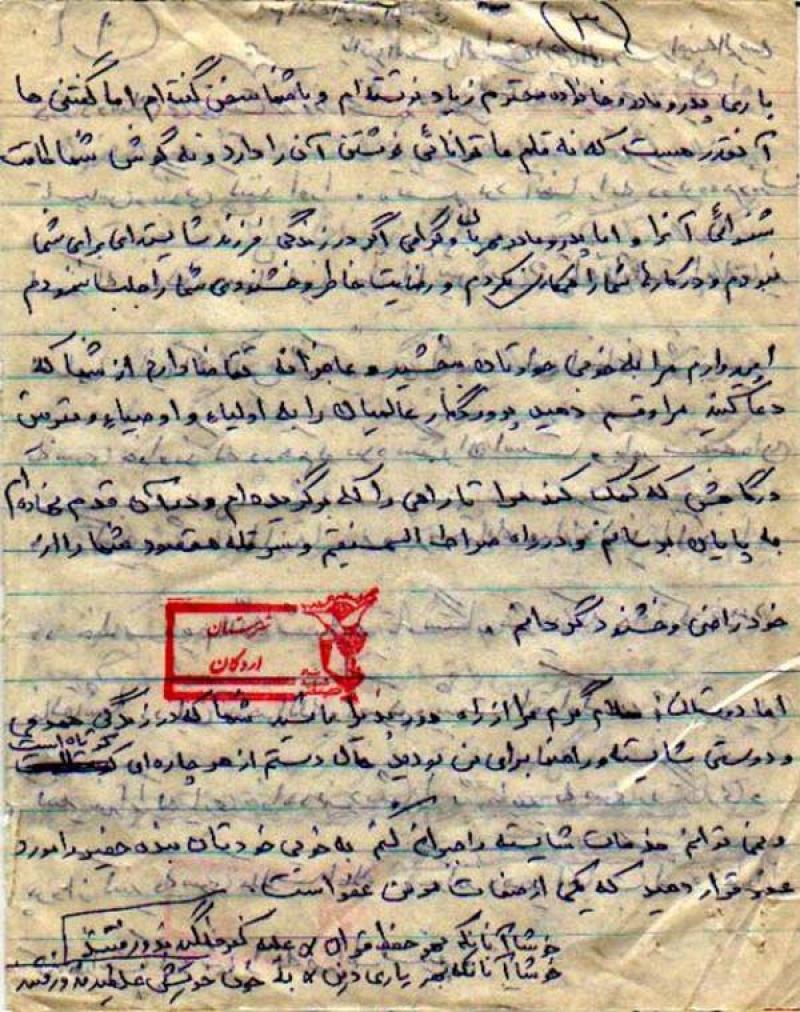 (۳)
باری پدر و مادر و خانواده محترم زیاد نوشته‌ام و با شما سخن گفته‌ام اما گفتنی ها
آنقدر هست که نه قلم ما توانائی نوشتن آن را دارد و نه گوش شما طاقت
شنوائی آنرا و اما پدر و مادر مهربان و گرامی اگر در زندگی فرزند شایسته‌ای برای شما
نبودم و در کارها شما را همکاری نکردم و رضایت خاطر و خشنودی شما را جلب ننمودم
امیدوارم مرا به خوبی خودتان ببخشید و عاجزانه تقاضا دارم از شما که
دعا کنید مرا و قسم دهید پروردگار عالمیان را به اولیاء و اوصیاء و مقربین
درگاهش که کمک کند مرا تا راهی را که برگزیده‌ام و در آن قدم نهاده‌ام
به پایان برسانم و در راه صراط المستقیم و سر قله مقصود شما را از
خود راضی و خشنود گردانم .
شهرستان
اردکان
اما دوستان: سلام گرم مرا از راه دور پذیرا باشید شما که در زندگی همدمی
و دوستی شایسته و راهنما برای من بودید حال دستم از هر چاره‌ای کوتاه است
و نمی توانم خدمات شایسته را جبران کنم به خوبی خودتان بنده حقیر را مورد
عفو قرار دهید که یکی از صفات مومن عفو است
خوشا آنانکه بهر حفظ قرآن علیه کفر جنگیدند و رفتند
خوشا آنانکه بهر یاری دین به خون خویش غلطیدند و رفتند